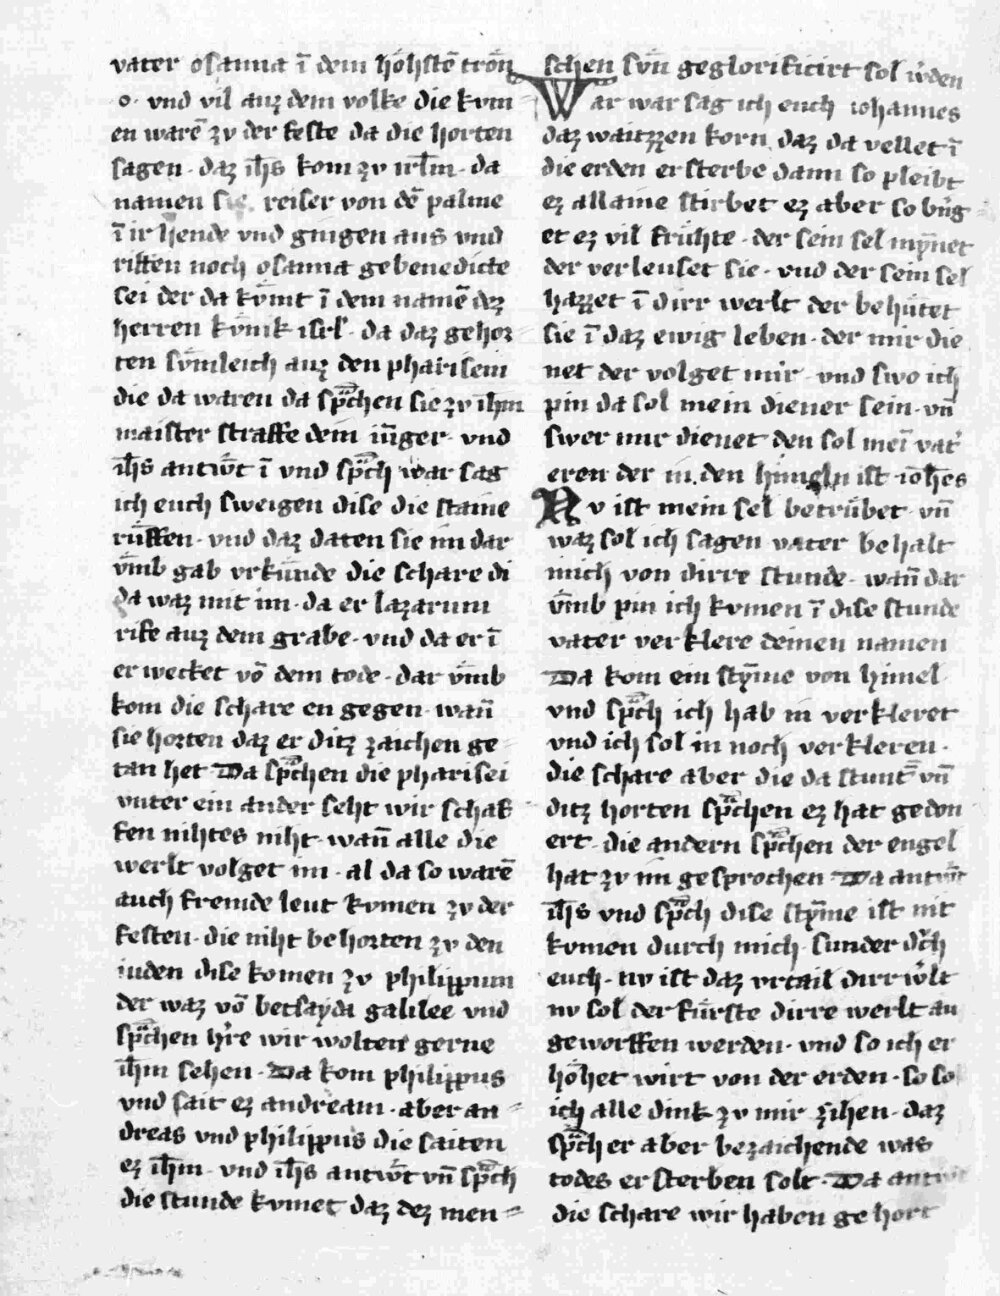 vater osanna ī dem höhstē trön
o · vnd vil auz dem volke die kvm
en warē zv der feste da die horten
sagen · daz ih̄s kom zv irl̄m · da
namen sie reiser von dē palme
ī ir hende vnd gingen aus vnd
riften noch osanna gebenedicte
sei der da kv̊mt ī dem namē dez
herren kv̊nik isrl̄ · da daz gehor
ten sv̊mleich auz den pharisein
die da waren da sp̄chen sie zv ihm
maister straffe dein iv̄nger · vnd
ih̄s antwt̄ ī vnd sp̄ch war sag
ich euch sweigen dise die staine
rüffen · vnd daz daten sie im dar
v̊mb gab vrkünde die schare di
da waz mit im · da er lazarum
rife auz dem grabe · vnd da er ī
er wecket vō dem tode · dar v̊mb
kom die schare en gegen · wan̄
sie horten daz er ditz zaichen ge
tan het Da sp̄chen die pharisei
vnter ein ander seht wir schaf
fen nihtes niht · wan̄ alle die
werlt volget im · al da so warē
auch fremde leut kvmen zv der
festen · die niht behorten zv den
iuden dise komen zv philippum
der waz vō betsayda galilee vnd
sp̄chen hr̄e wir wolten gerne
ih̄m sehen · Da kom philippus
vnd sait ez andream · aber an
dreas vnd philippus die saiten
ez ih̄m · vnd ih̄s antwt̄ vn̄ sp̄ch
die stunde kvmet daz dez men
schen sv̊n geglorificirt sol w̉den
War war sag ich euch iohannes
daz waitzzen korn daz da vellet ī
die erden ersterbe dann so pleibt
ez allaine stirbet ez aber so bri̊g
et ez vil frühte · der sein sel mȳnet
der verleuset sie · vnd der sein sel
hazzet ī dirr werlt der behütet
sie ī daz ewig leben · der mir die
net der volget mir · vnd swo ich
pin da sol mein diener sein · vn̄
swer mir dienet den sol meī vat̉
eren der in den himeln ist · ioh̄es
Nv ist mein sel betrübet · vn̄
waz sol ich sagen vater behalt
mich von dirre stunde · wan̄ dar
v̊mb pin ich kvmen ī dise stunde
vater verklere deinen namen
Da kom ein stȳme von himel
vnd sp̄ch ich hab in verkleret
vnd ich sol in noch verkleren ·
die schare aber die da stunt̄ vn̄
ditz horten sp̄chen ez hat gedon
ert · die andern sp̄chen der engel
hat zv im gesprochen Da antwt̄
ih̄s vnd sp̄ch dise stȳme ist nit
kvmen durch mich · sunder dc̉h
euch · nv ist daz vrtail dirr w̉lt
nv sol der fürste dirre werlt au
geworffen werden · vnd so ich er
höhet wirt von der erden · so so
ich alle dink zv mir zihen · daz
sp̄ch er aber bezaichende was
todes ersterben solt · Da antwt
die schare wir haben gehort